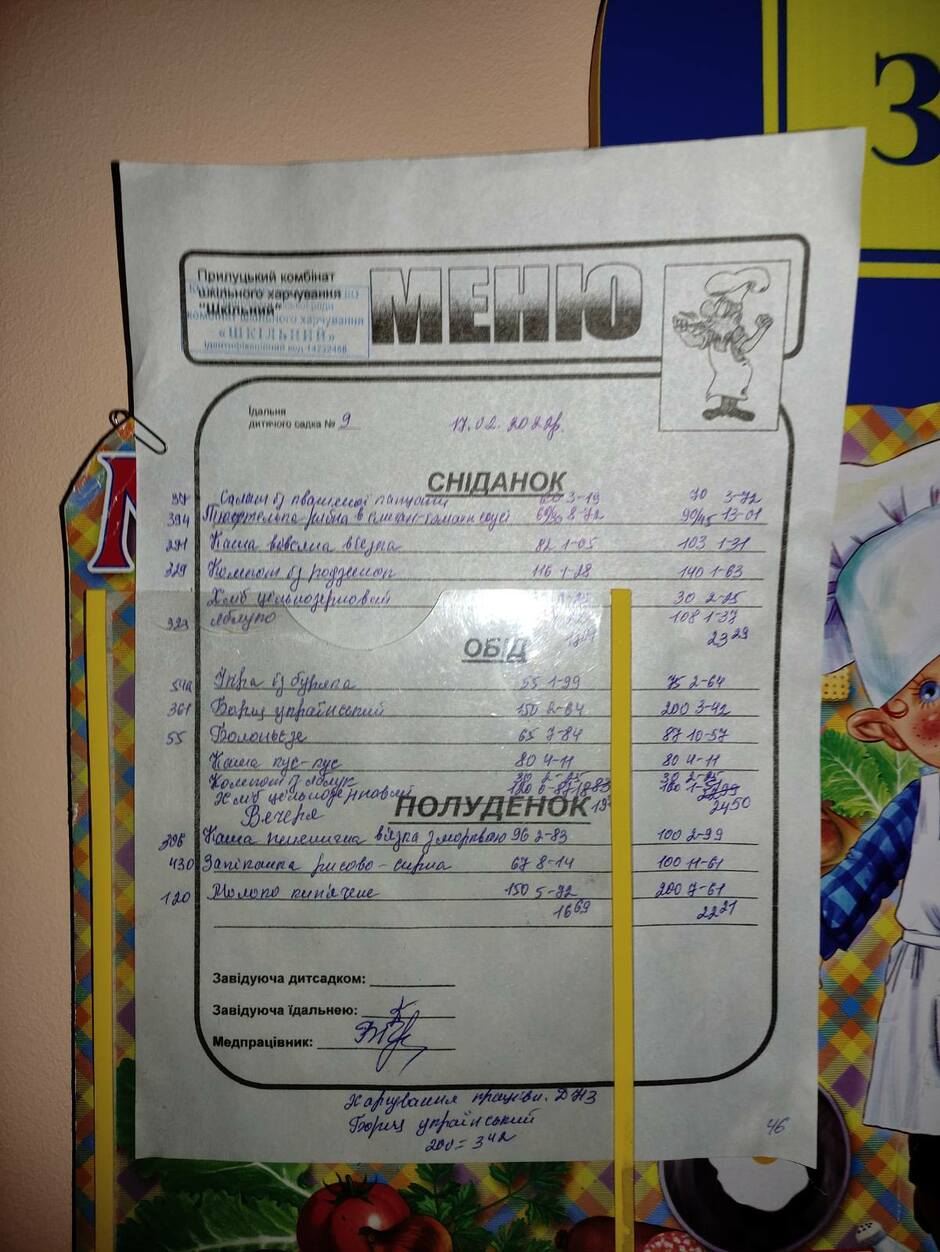 З
Прилуцький комбінат
шкільного харчування
"Шкільний"
шкільного харчування
«ШКІЛЬНИЙ»
ідентифікаційний код 14232466
МЕНЮ
Їдальня
дитячого садка № 9 17.02.2022р.
СНІДАНОК
Салат із квашеної капусти 3-19 70 3-72
394 рибна в 8-72 90/45 13-01
291 Каша вівсяна в'язка 82 1-05 103 1-31
329 Компот із родзинок 116 1-28 140 1-63
Хліб цельнозерновий 30 2-25
323 Яблуко 108 1-37
23 29
ОБІД
54а Ікра із буряка 55 1-99 75 2-64
361 Борщ український 150 2-64 200 3-42
55 Болоньєзе 65 7-84 87 10-57
Каша кус-кус 80 4-11 80 4-11
Компот із яблук 30 2-25 30 2-25
Хліб цельнозерновий
ПОЛУДЕНОК
Вечеря 24 50
Каша пшенична в'язка з морквою 96 2-83 100 2-99
430 Запіканка рисово-сирна 67 8-14 100 11-61
120 Молоко кип'ячене 150 5-72 200 7-61
16 69 22 21
Завідуюча дитсадком:
Завідуюча їдальнею:
Медпрацівник:
Харчування праців. ДНЗ
Борщ український
200 = 3 42
46